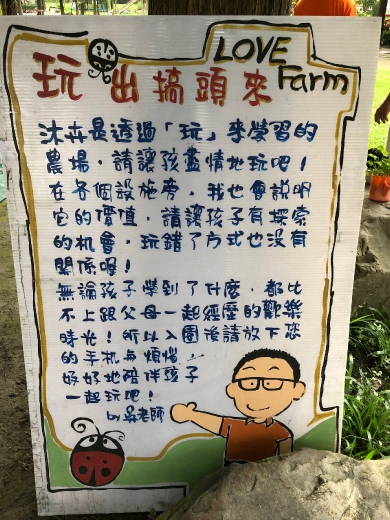 LOVE
Farm
玩出搞頭來
沐卉是透過「玩」來學習的
農場，請讓孩盡情地玩吧！
在各個設施旁，我也會說明
它的價值，請讓孩子有探索
的機會，玩錯了方式也沒有
關係喔！
無論孩子學到了什麼，都比
不上跟父母一起經歷的歡樂
時光！所以入園後請放下您
的手機與煩惱，
好好地陪伴孩子
一起玩吧！
by吳老師